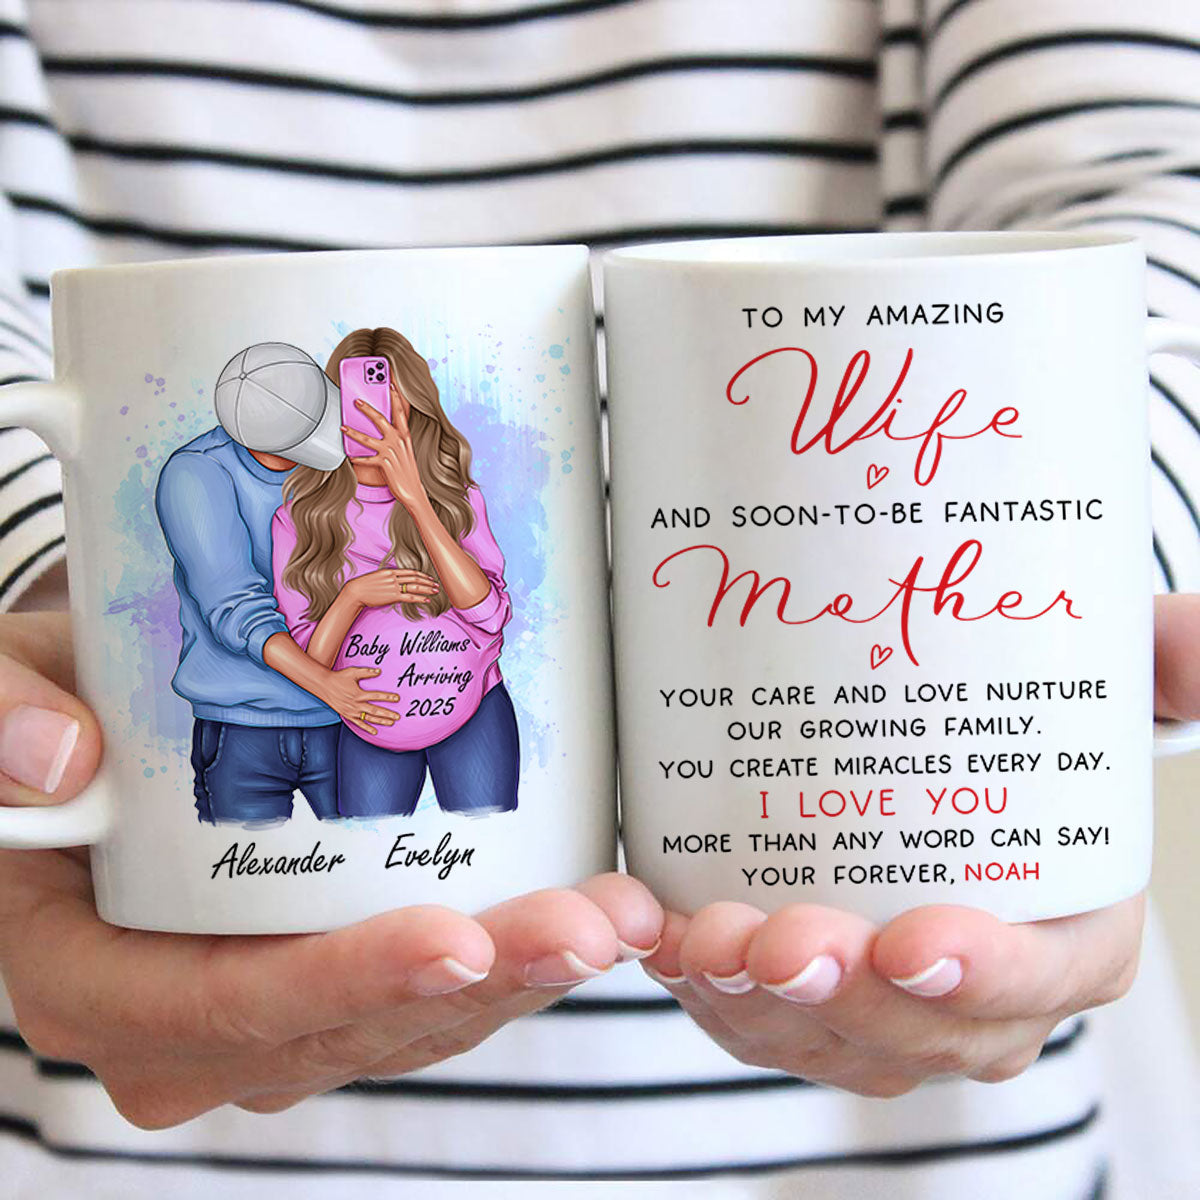 Baby Williams
Arriving
2025
Alexander Evelyn
TO MY AMAZING
Wife
AND SOON-TO-BE FANTASTIC
Mother
YOUR CARE AND LOVE NURTURE
OUR GROWING FAMILY.
YOU CREATE MIRACLES EVERY DAY.
I LOVE YOU
MORE THAN ANY WORD CAN SAY!
YOUR FOREVER, NOAH